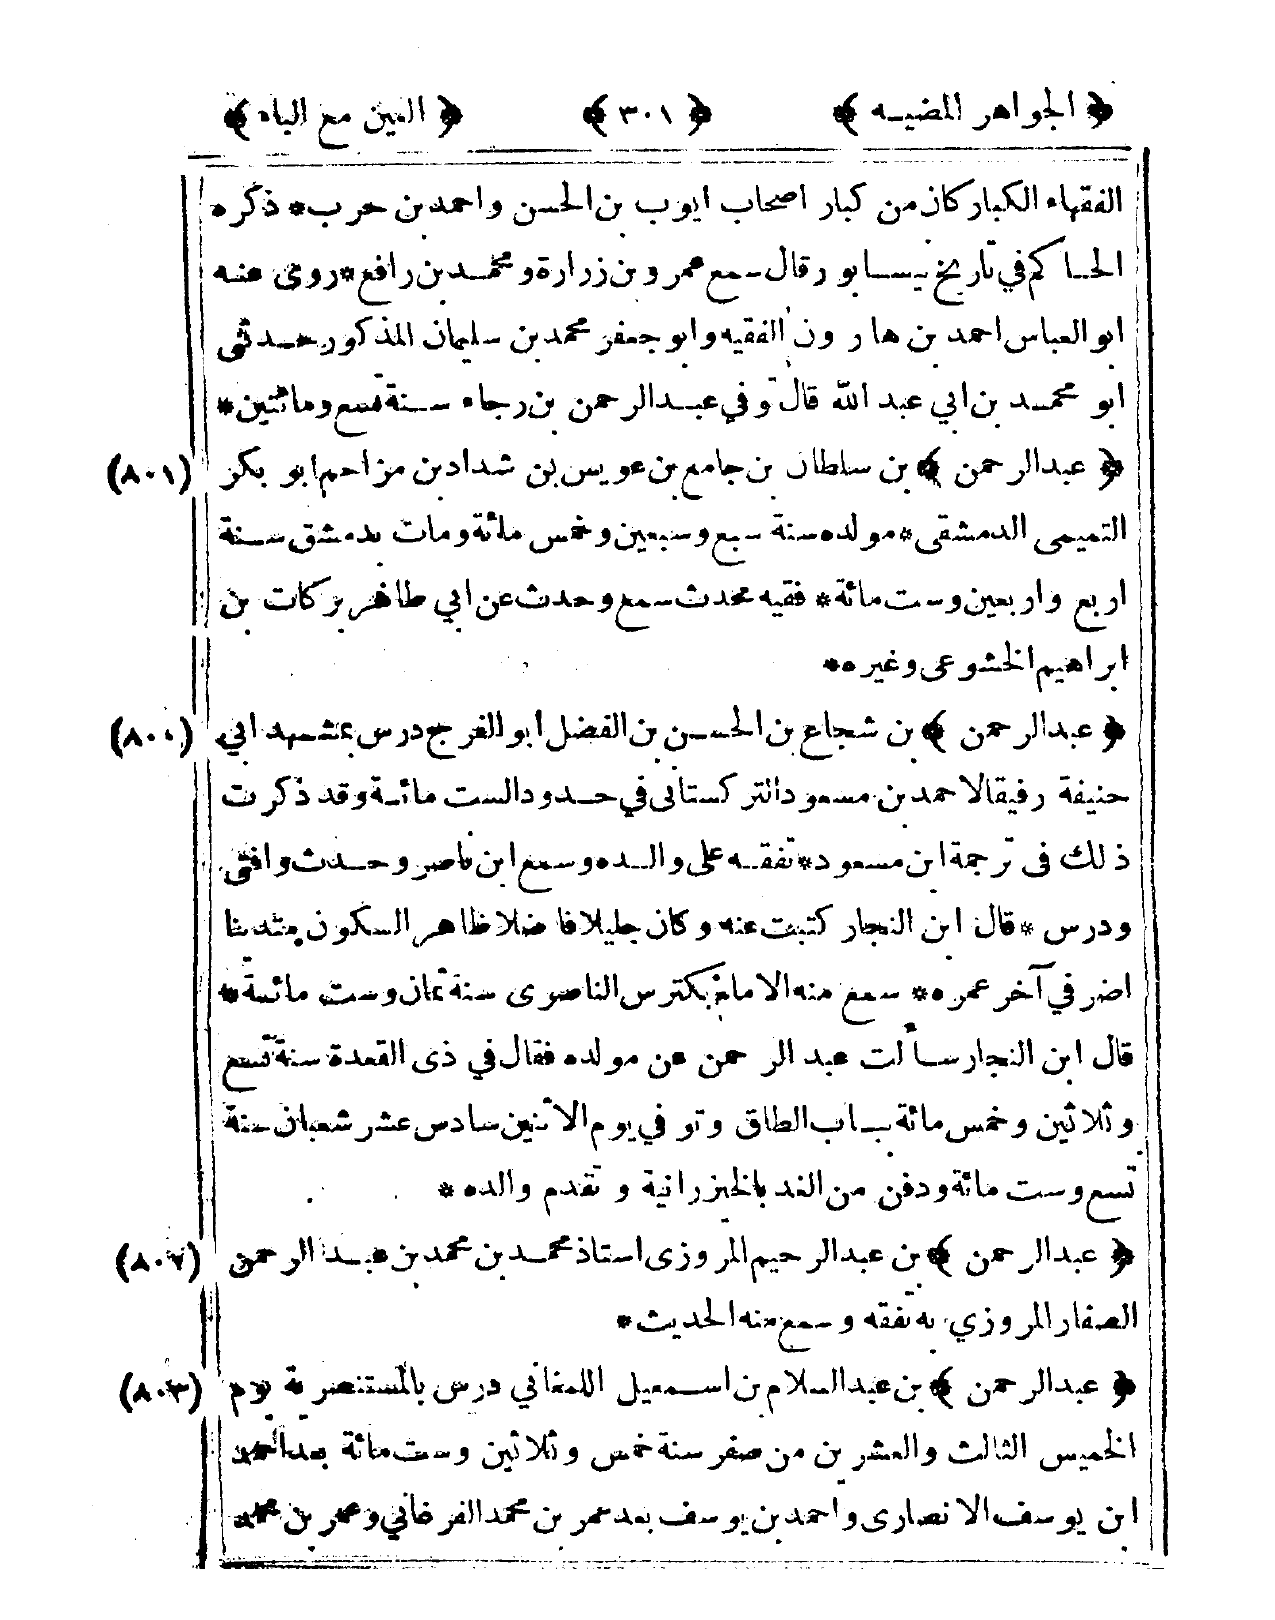 ﴿ الجواهر المضيه ﴾ ﴿ ٣٠١ ﴾ ﴿ العين مع الباء ﴾
الفقهاء الكبار كان من كبار اصحاب ايوب بن الحسن واحمد بن حرب * ذكره
الحاكم في تاريخ نيسابور قال سمع عمرو بن زرارة ومحمد بن رافع * روى عنه
ابو العباس احمد بن هارون الفقيه وابو جعفر محمد بن سليمان المذكور حدثنى
ابو محمد بن ابي عبد الله قال توفي عبد الرحمن بن رجاء سنة تسع ومائتين *
﴿ عبد الرحمن ﴾ بن سلطان بن جامع بن عويس بن شداد بن مزاحم ابو بكر (٨٠١)
التميمى الدمشقى * مولده سنة سبع وسبعين وخمس مائة ومات بدمشق سنة
اربع واربعين وست مائة * فقيه محدث سمع وحدث عن ابي طاهر بركات بن
ابراهيم الخشوعى وغيره *
﴿ عبد الرحمن ﴾ بن شجاع بن الحسن بن الفضل ابو الفرج درس بمشهد ابي (٨٠٠)
حنيفة رفيقا لاحمد بن مسعود التركستانى في حدود الست مائة وقد ذكرت
ذلك فى ترجمة ابن مسعود * تفقه على والده وسمع ابن ناصر وحدث وافتى
ودرس * قال ابن النجار كتبت عنه وكان جليلا فاضلا ظاهر السكون متدينا
اضر في آخر عمره * سمع منه الامام بكترس الناصرى سنة ثمان وست مائة *
قال ابن النجار سألت عبد الرحمن عن مولده فقال في ذى القعدة سنة تسع
وثلاثين وخمس مائة بباب الطاق وتوفي يوم الاثنين سادس عشر شعبان سنة
تسع وست مائة ودفن من الغد بالخيزرانية وتقدم والده *
﴿ عبد الرحمن ﴾ بن عبد الرحيم المروزى استاذ محمد بن محمد بن عبد الرحمن (٨٠٢)
الصفار المروزي به تفقه وسمع منه الحديث *
﴿ عبد الرحمن ﴾ بن عبد السلام بن اسمعيل اللمغاني درس بالمستنصرية يوم (٨٠٣)
الخميس الثالث والعشرين من صفر سنة خمس وثلاثين وست مائة بعد احمد
ابن يوسف الانصارى واحمد بن يوسف بعد عمر بن محمد الفرغاني وعمر بن محمد